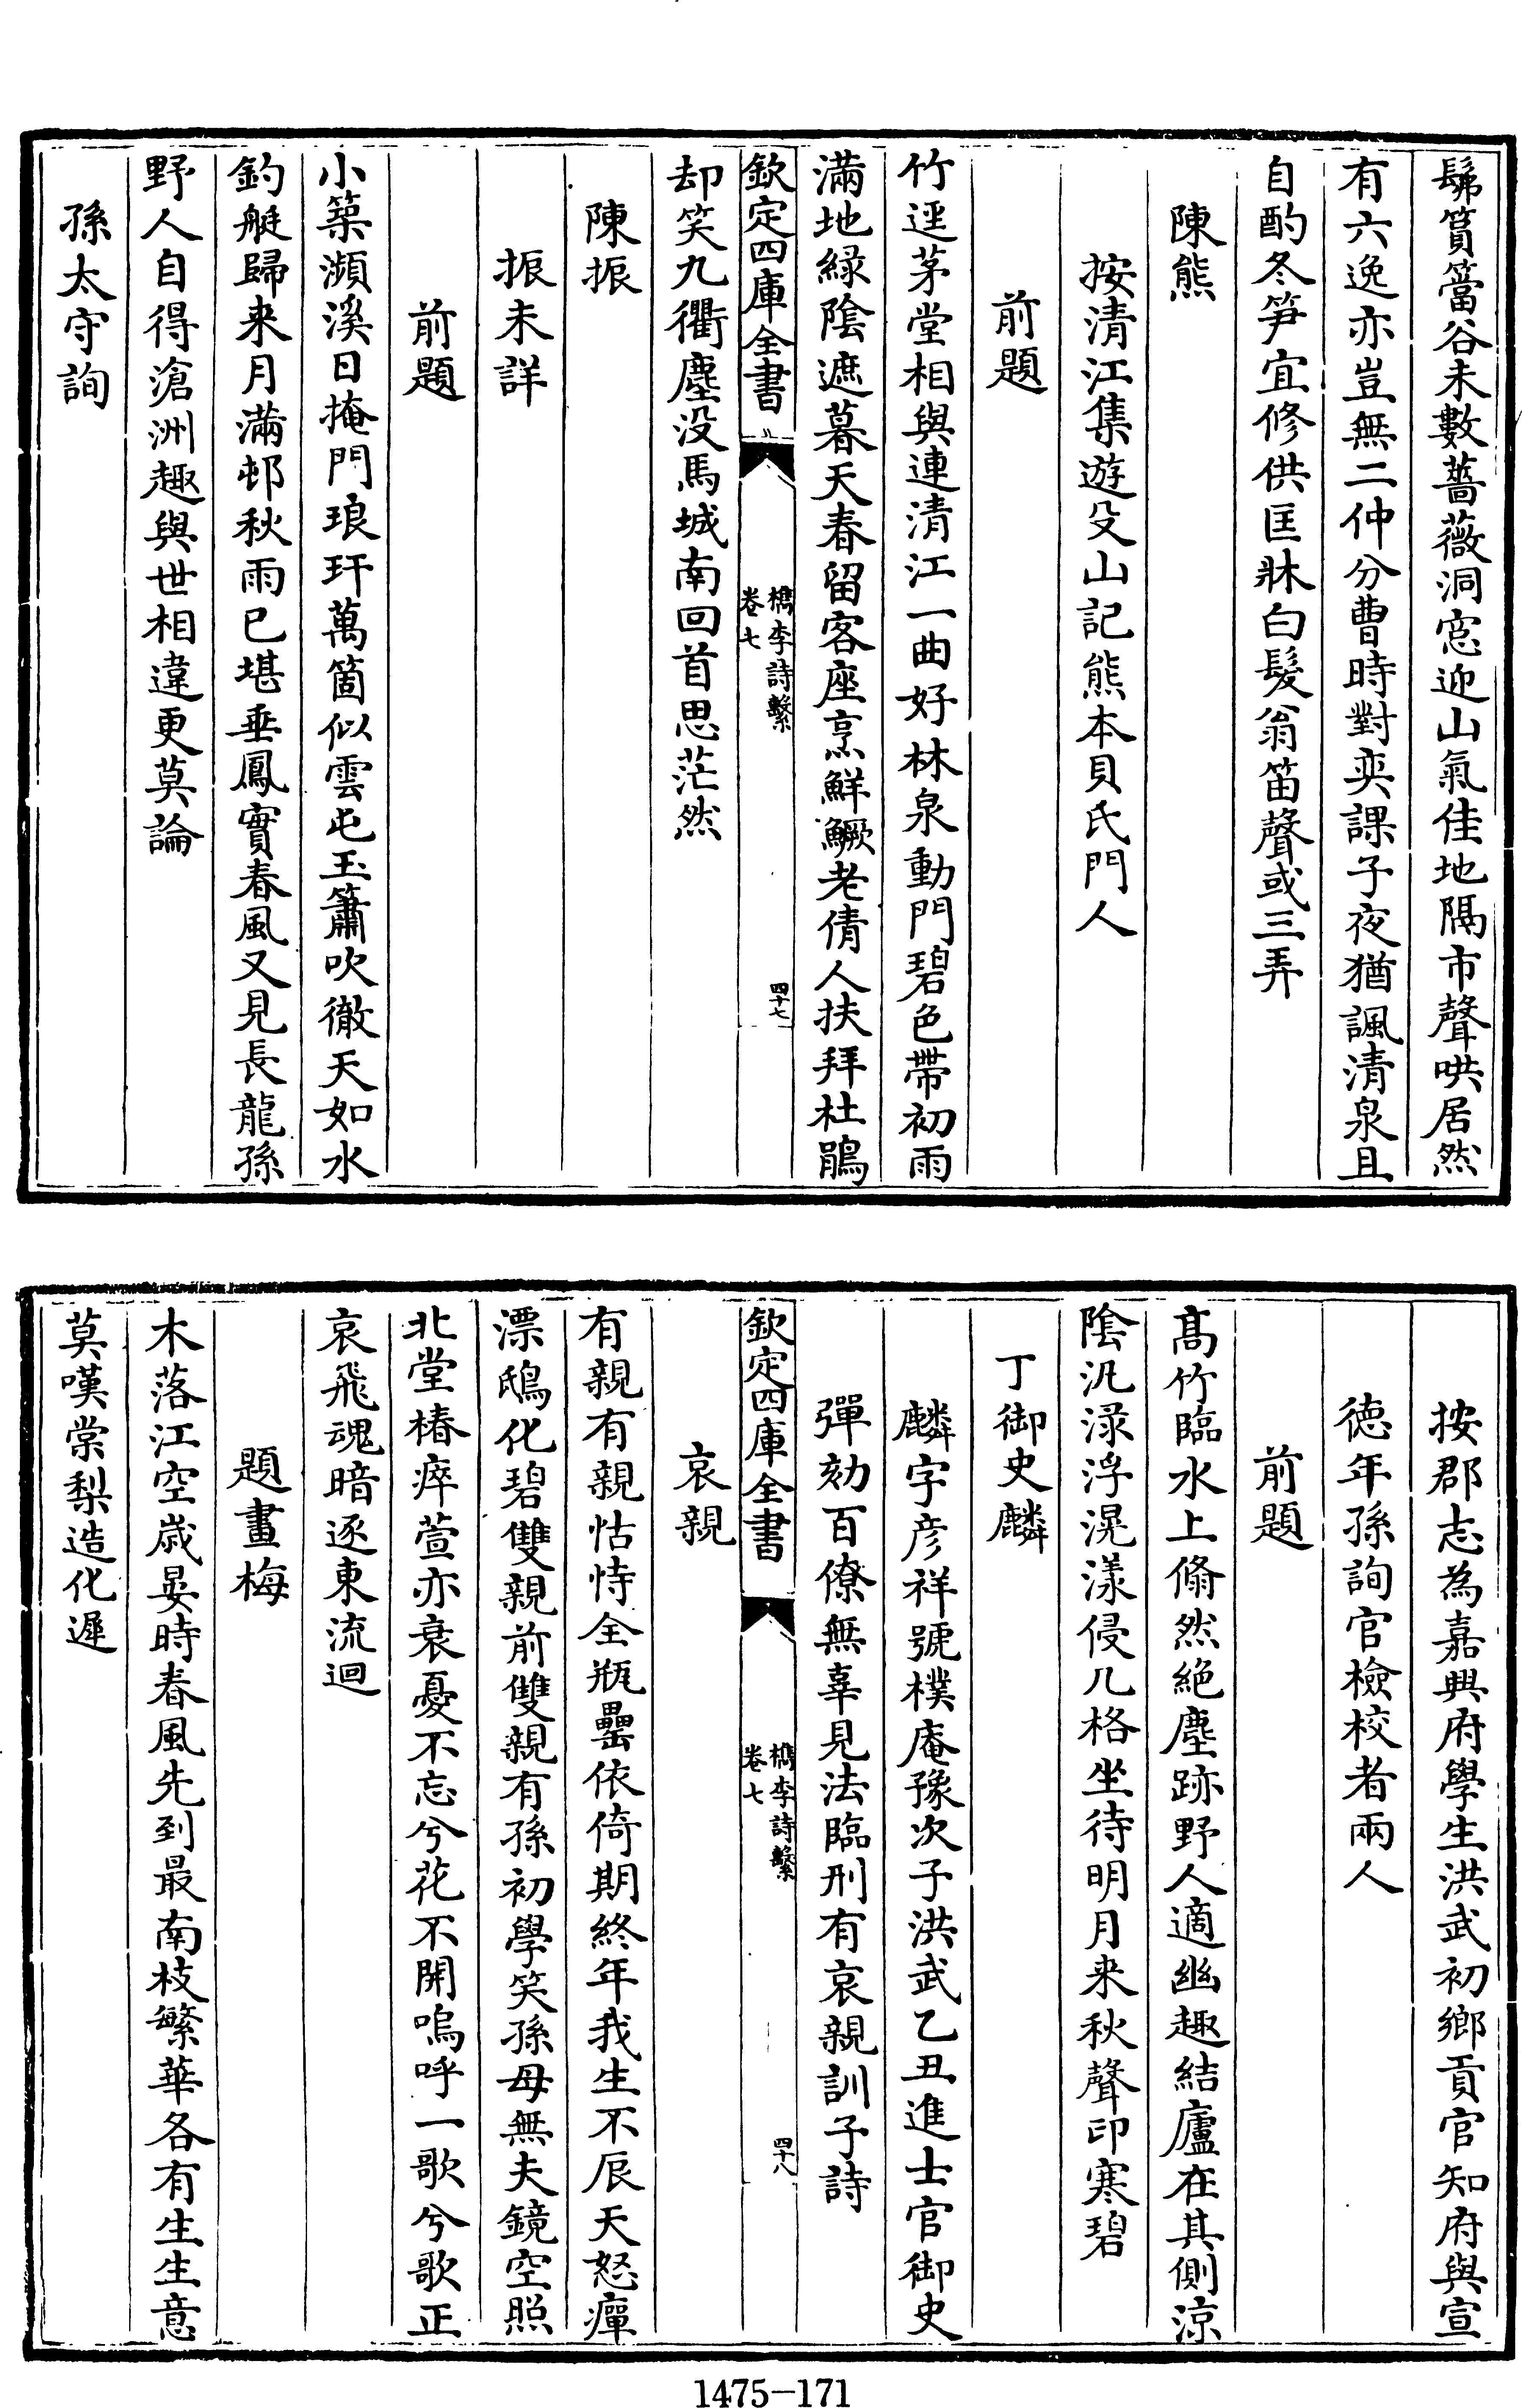 髴篔簹谷未數薔薇洞窓迎山氣佳地隔市聲哄居然
有六逸亦豈無二仲分曹時對奕課子夜猶諷清泉且
自酌冬笋宜修供匡牀白髮翁笛聲或三弄
陳熊
按清江集遊殳山記熊本貝氏門人
前題
竹逕茅堂相與連清江一曲好林泉動門碧色帶初雨
滿地緑陰遮暮天春留客座烹鮮鱖老倩人扶拜杜鵑
欽定四庫全書
檇李詩繫
卷七
四十七
却笑九衢塵没馬城南回首思茫然
陳振
振未詳
前題
小築瀕溪日掩門琅玕萬箇似雲屯玉簫吹徹天如水
釣艇歸来月滿邨秋雨已堪垂鳳實春風又見長龍孫
野人自得滄洲趣與世相違更莫論
孫太守詢
按郡志為嘉興府學生洪武初鄉貢官知府與宣
德年孫詢官檢校者兩人
前題
髙竹臨水上翛然絶塵跡野人適幽趣結廬在其側涼
陰汎渌浮滉漾侵几格坐待明月来秋聲印寒碧
丁御史麟
麟字彦祥號樸庵豫次子洪武乙丑進士官御史
彈劾百僚無辜見法臨刑有哀親訓子詩
欽定四庫全書
檇李詩繫
卷七
四十八
哀親
有親有親怙恃全瓶罍依倚期終年我生不辰天怒癉
漂鴟化碧雙親前雙親有孫初學笑孫母無夫鏡空照
北堂椿瘁萱亦衰憂不忘兮花不開嗚呼一歌兮歌正
哀飛魂暗逐東流迴
題畫梅
木落江空歳晏時春風先到最南枝繁華各有生生意
莫嘆棠梨造化遲
1475-171